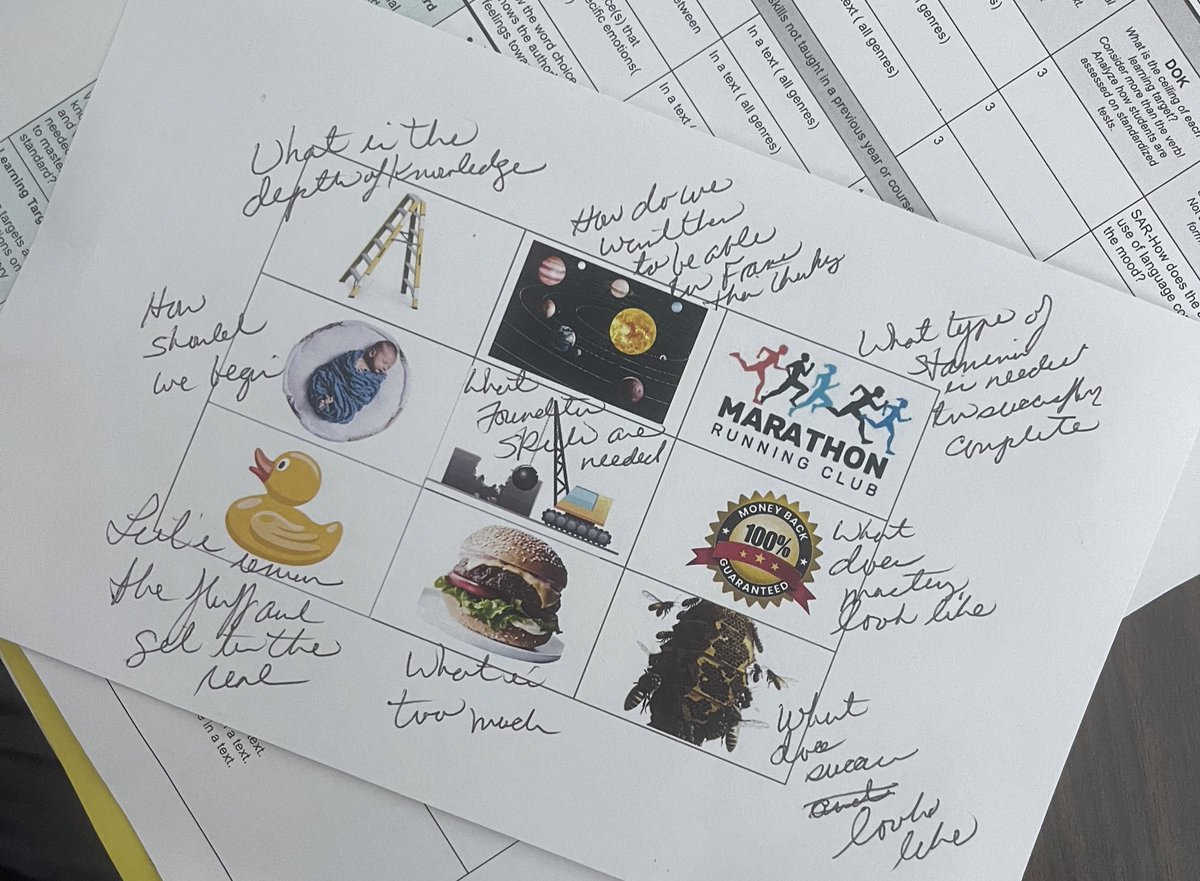 What is the
depth of knowledge
How do we
want them
to be able
to Frame
their thinking
What type of
Stamina
is needed
to successfully
complete
How
should
we begin
What
Foundation
Skills are
needed
MARATHON
RUNNING CLUB
MONEY BACK
100%
GUARANTEED
What
does
mastery
look like
the fluff and
get to the
real
What is
too much
What
does
looks
like
rd
ow the word choice
hows the author
feelings towa
ice(s) that
ecific emotions(
etween
In a text ( all genres)
In a text ( all genres)
In a text ( all genres)
In a t
skills not taught in a previous year or course
text (all genres)
res)
3
3
3
DOK
What is the ceiling of each
learning target?
Consider more than the verb!
Analyze how students are
assessed on standardized
tests.
No
form
SAR-How does the
use of language co
the mood?
and
kn
neede
to maste
standard?
Learning Targ
targets a
ions on
ery
a text.
a text.
in a text.